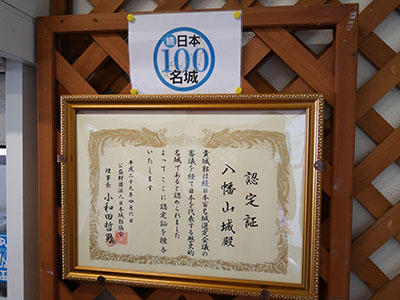 続日本
100
名城
認定証
八幡山城殿
貴城郭は続日本百名城選定会議の
審議を経て日本を代表する歴史的
名城であると認められました
よってここに認定証を授与
いたします
平成二十九年四月六日
公益財団法人日本城郭協会
理事長 小和田哲男